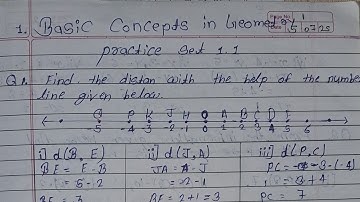 1. Basic Concepts in Geometry
5 07 25
practice set 1.1
Q1. Find the distan with the help of the number
line given below.
Q P K J H O A B C D E
-5 -4 -3 -2 -1 0 1 2 3 4 5 6
i) d(B, E) ii) d(J, A) iii) d(P, C)
BE = E - B JA = - J PC = 3 - (-4)
= 5 - 2 = 3 + 4
BE = 3 = 2 + 1 = 3 PC = 7